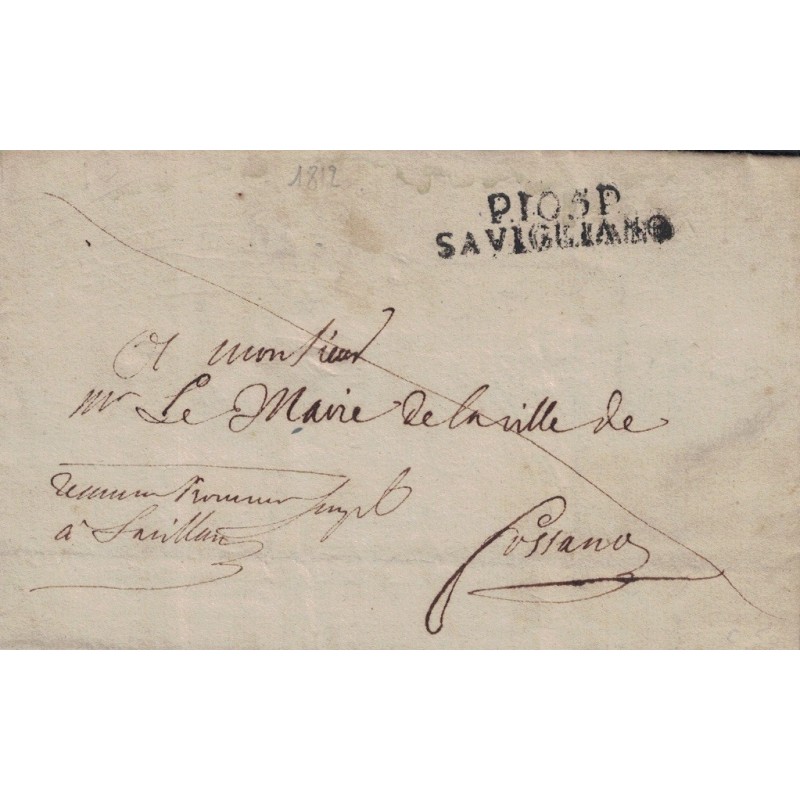 1812
P105P
SAVIGLIANO
A monsieur
mr Le Maire de la ville de
à Savillan
Fossano